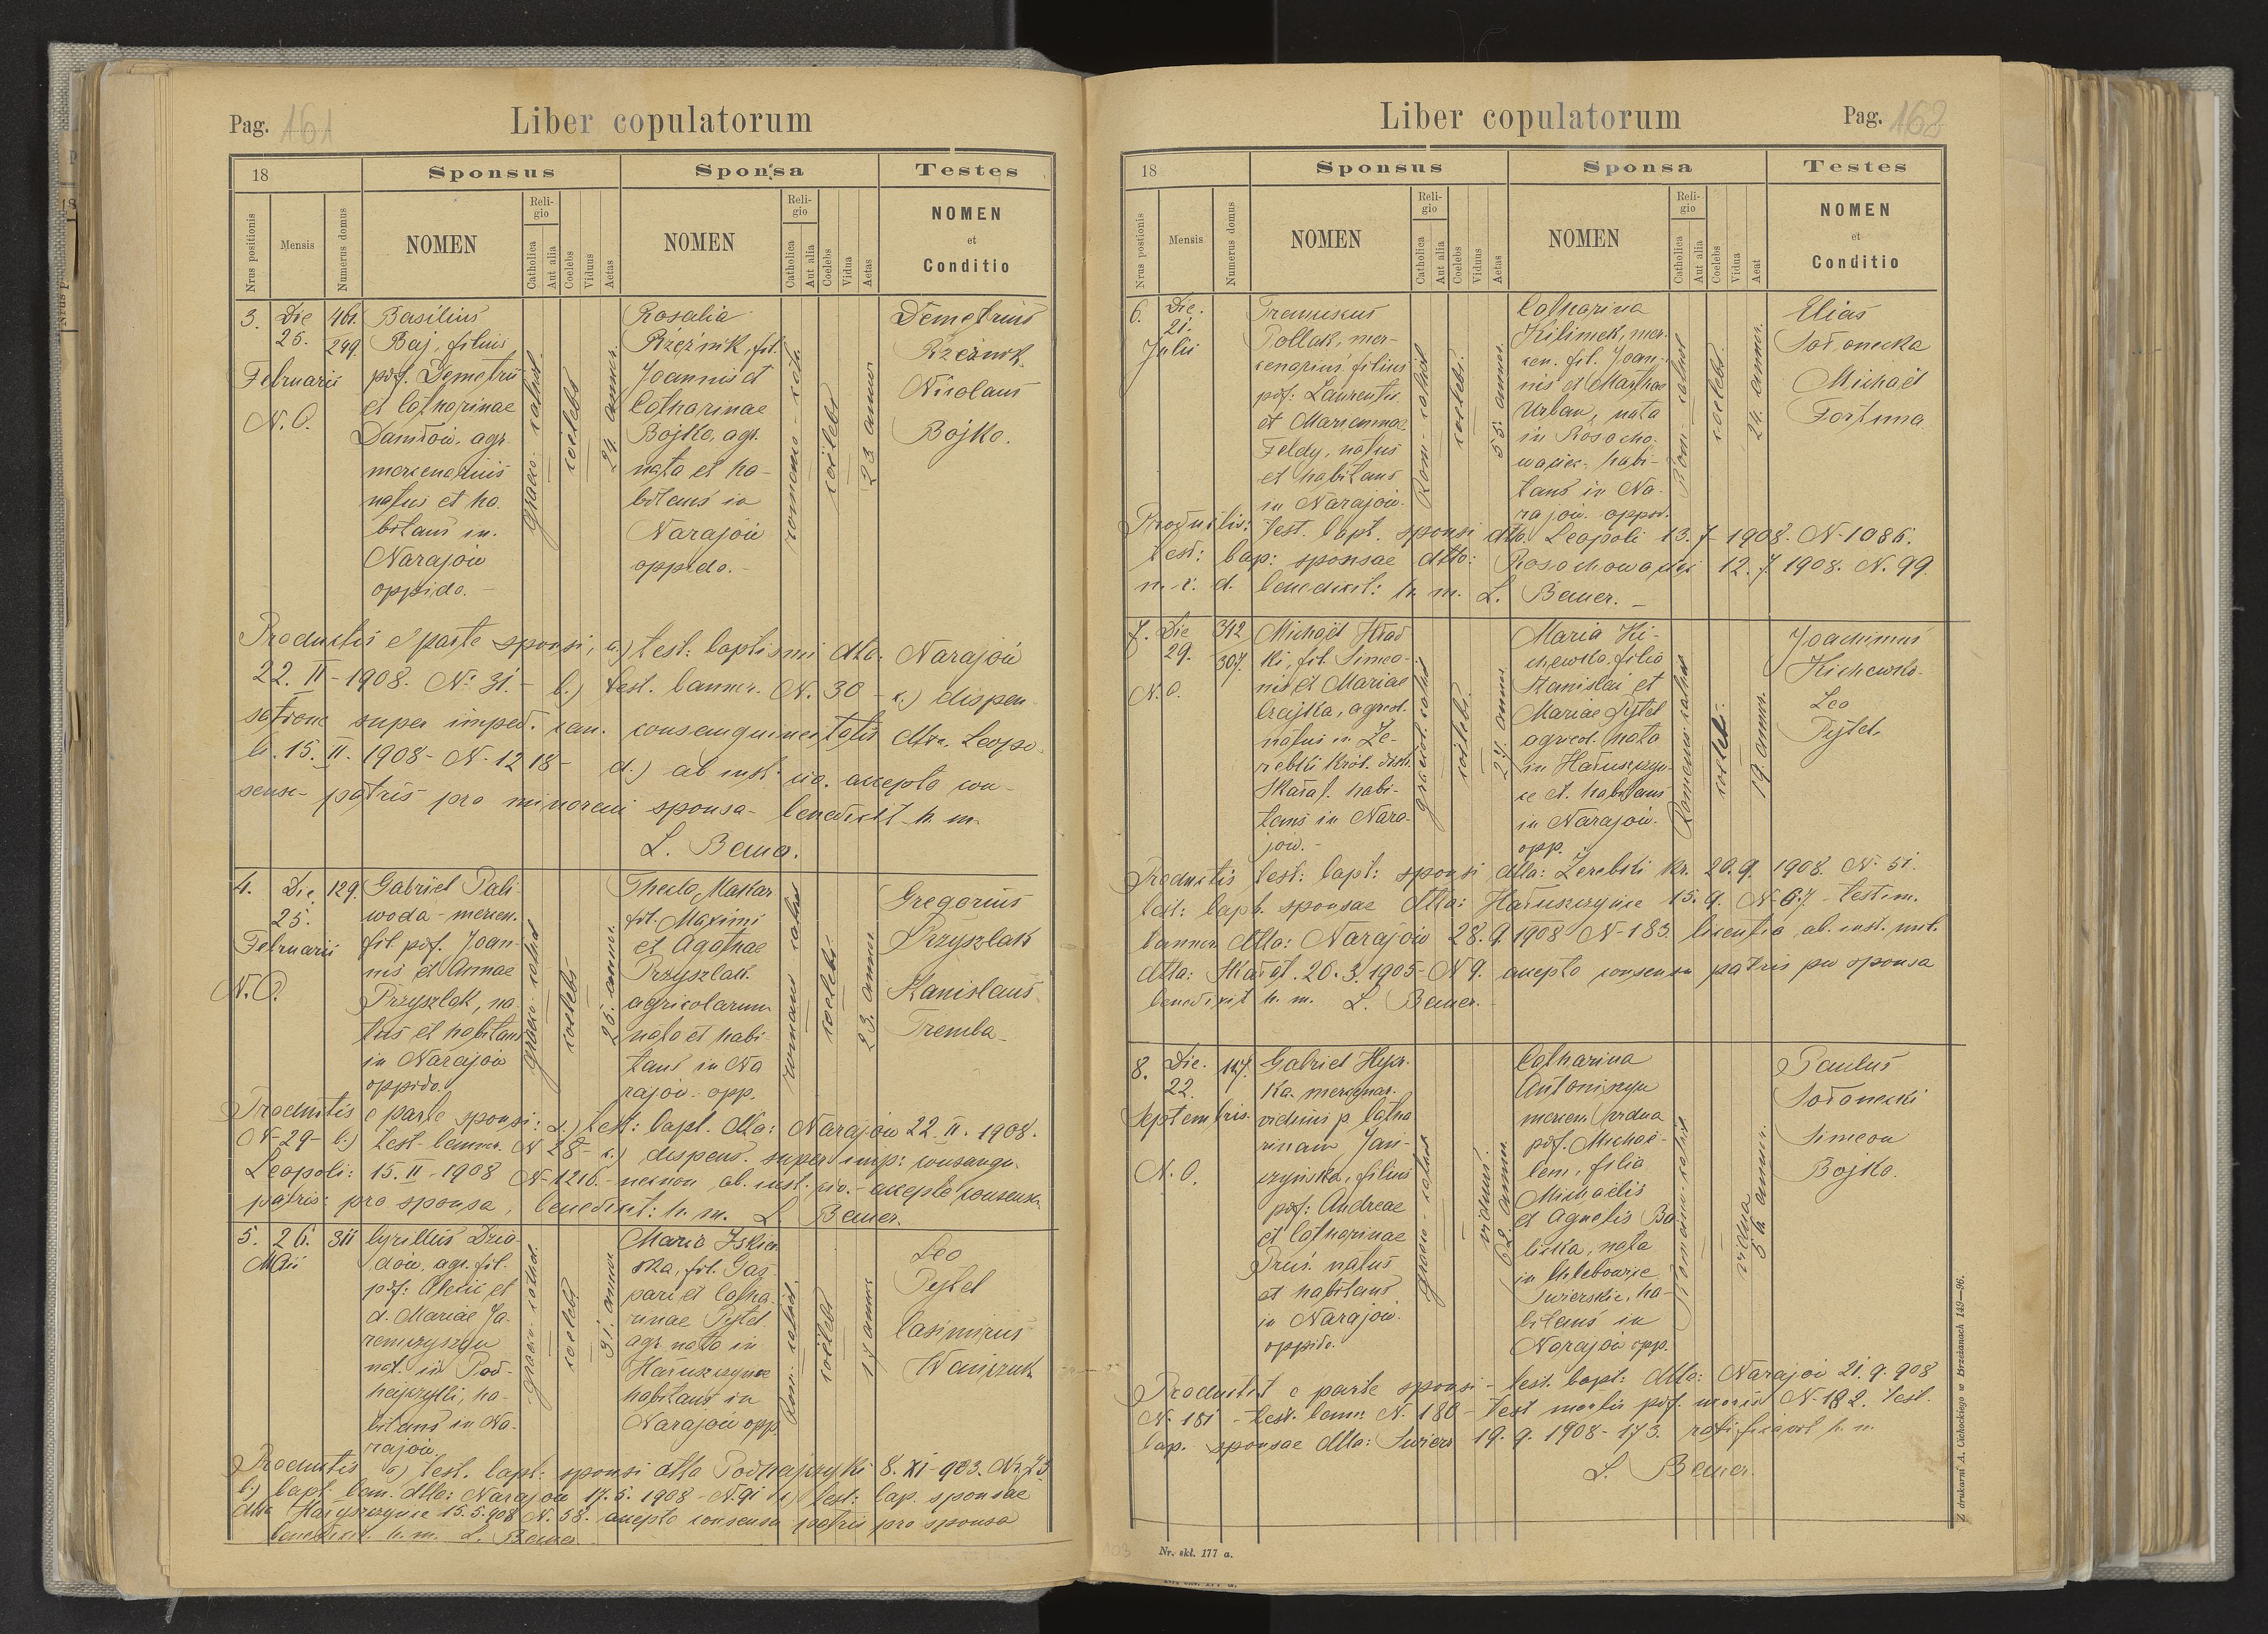 Pag. 161
Liber copulatorum
18
Sponsus
Sponsa
Testes
Nrus positionis
Mensis
Numerus domus
NOMEN
Reli-
gio
Catholica
Aut alia
Coelebs
Viduus
Aetas
NOMEN
Reli-
gio
Catholica
Aut alia
Coelebs
Vidua
Aetas
NOMEN
et
Conditio
3.
Die
25.
Februarii
N. O.
461.
249
Basilius
Baj, filius
pdf. Demetrii
et Catharinae
agr.
mercenarius
natus et ha-
bitans in
Narajów
oppido. -
graeco. cathol.
coelebs
24. annor.
Rosalia
Rzeźnik, fil.
Joannis et
Catharinae
Bojko, agr.
nata et ha-
bitans in
Narajów
oppido. -
romano - cath.
coelebs
23 annor
Demetrius
Rzeźnik
Nicolaus
Bojko.
Productis e parte sponsi, a.) test: baptismi dto. Narajów
22. II - 1908. No 31. - b.) test. bannor. N. 30 - c.) dispen-
satione super imped. can. consanguineitatis dto. Leopo-
li. 15. II. 1908 - N. 1218 - d.) ab inst. accepto con-
sensu patris pro minoreni sponsa - benedixit h. m.
L. Bauer.
4.
Die
25.
Februarii
N. O.
129.
Gabriel Pali-
woda - mercen.
fil. pdf. Joan-
nis et Annae
Przyszlak, na-
tus et habitans
in Narajów
oppido.
graeco. cathol
coelebs
26. annor.
Thecla Maskar
fil. Maximi
et Agathae
Przyszlak
agricolarum
nata et habi-
tans in Na
rajów. opp.
romano cathol
coelebs
23. annor
Gregorius
Przyszlak
Stanislaus
Tremba
Productis e parte sponsi: a.) test: bapt. dto: Narajów 22. II. 1908.
N-29- b.) test. bannor. N 28 - c.) dispens. super imp: consangu.
Leopoli: 15. II - 1908 N-1216. - necnon ab. inst. civ. - accepto consensu
patris: pro sponsa, benedixit: h. m. L. Bauer.
5.
26.
Maii
311
Cyrillus Dzia-
dów, agr. fil.
pdf. Alexii et
d. Mariae Ja-
remczyszyn
nat. in Pod-
hajczyki, ha-
bitans in Na-
rajów
graeco. cathol.
coelebs
31. annor
Maria Iskier-
ska, fil. Gas-
pari et Catha-
rinae Pytel
agr. nata in
Hatuszczyńce
habitans in
Narajów opp.
Rom. cathol.
coelebs
17 annor
Leo
Pytel
Casimirus
Wanczuk
Productis a) test. bapt: sponsi dto Podhajczyki 8. XI - 903. Nr. 73
b.) bapt: ban. dto: Narajów 17. 5. 1908 - N. 91 c) test: bap. sponsae
dto 15. 5. 908 N. 58. accepto consensu patris pro sponsa
benedixit. h. m. L. Bauer
Liber copulatorum
Pag. 162
18
Sponsus
Sponsa
Testes
Nrus postionis
Mensis
Numerus domus
NOMEN
Reli-
gio
Catholica
Aut alia
Coelebs
Viduus
Aetas
NOMEN
Reli-
gio
Catholica
Aut alia
Coelebs
Vidua
Aeat
NOMEN
et
Conditio
6.
Die.
21.
Julii
Franciscus
Pollak, mer-
cenarius filius
pdf: Laurentii
et Mariannae
Feldy, natus
et habitans
in Narajów.
Rom. cathol
coelebs.
55. annor.
Catharina
Kilimek, mer-
cen. fil. Joan-
nis et Marthae
Urban, nata
in Rosocho-
waciec. habi-
tans in Na-
rajów. oppid.
Rom. cathol
coelebs.
24. annor.
Elias
Michaël
Fortuna
Productis: test. bapt. sponsi dto. Leopoli 13. 7 - 1908. N-1086.
test: bap: sponsae dtto: 12. 7. 1908. N. 99
benedixit: h. m. L. Bauer. -
7.
Die
29.
N. O.
312
307.
Michaël
ki, fil. Simeo-
nis et Mariae
Czajka, agricol.
natus in Ze-
rebki Król. distr.
Skałat. habi-
tans in Nara-
jów. -
graeco. cathol
coelebs.
27. annor.
Maria Ki-
chewska, filia
Stanislai et
Mariae Pytel
agricol. nata
in Hatuszczyń-
ce et. habitans
in Narajów.
opp.
Romano cathol
coelebs.
19. annor.
Joachimus
Kichewsko-
Leo
Pytel.
Productis test: bapt: sponsi dto: Zerebki Kr. 20. 9. 1908. N- 51.
test: bapt. sponsae dto: Hatuszczyńce 15. 9. N- 67. - testim.
bannor dto: Narajów 28. 9. 1908 N-183. licentia ab. inst. mil.
dto: Skałat. 26. 3. 1905 - N 9. accepto consensu patris pro sponsa
benedixit h. m. L. Bauer.
8.
Die.
22.
Septembris.
N. O.
117.
Gabriel
ka. mercenar.
viduus p. Catha
rinam Jan-
czyńska, filius
pdf: Andreae
et Catharinae
Pruś. natus
et habitans
in Narajów.
oppido.
graeco - cathol
viduus.
62. annor
Catharina
Antoniszyn
mercen. vidua
pdf. Michaë-
lem, filia
Michaëlis
et Agnetis Ba-
licka, nata
in Chlebowice
Swierskie, ha-
bitans in
Narajów opp.
Romano. cathol
vidua
54. annor.
Paulus
Simeon
Bojko.
Productis e parte sponsi - test. bapt: dto: Narajów 21. 9. 908
N. 181 - test. bann. N. 180 - test mortis pdf. N-182. test.
bap. sponsae dto: Swierz 19. 9. 1908 - 173. h. m.
L. Bauer.
Nr. skł. 177 a.
Z drukarni A. Cichockiego w Brzeżanach 149—96.